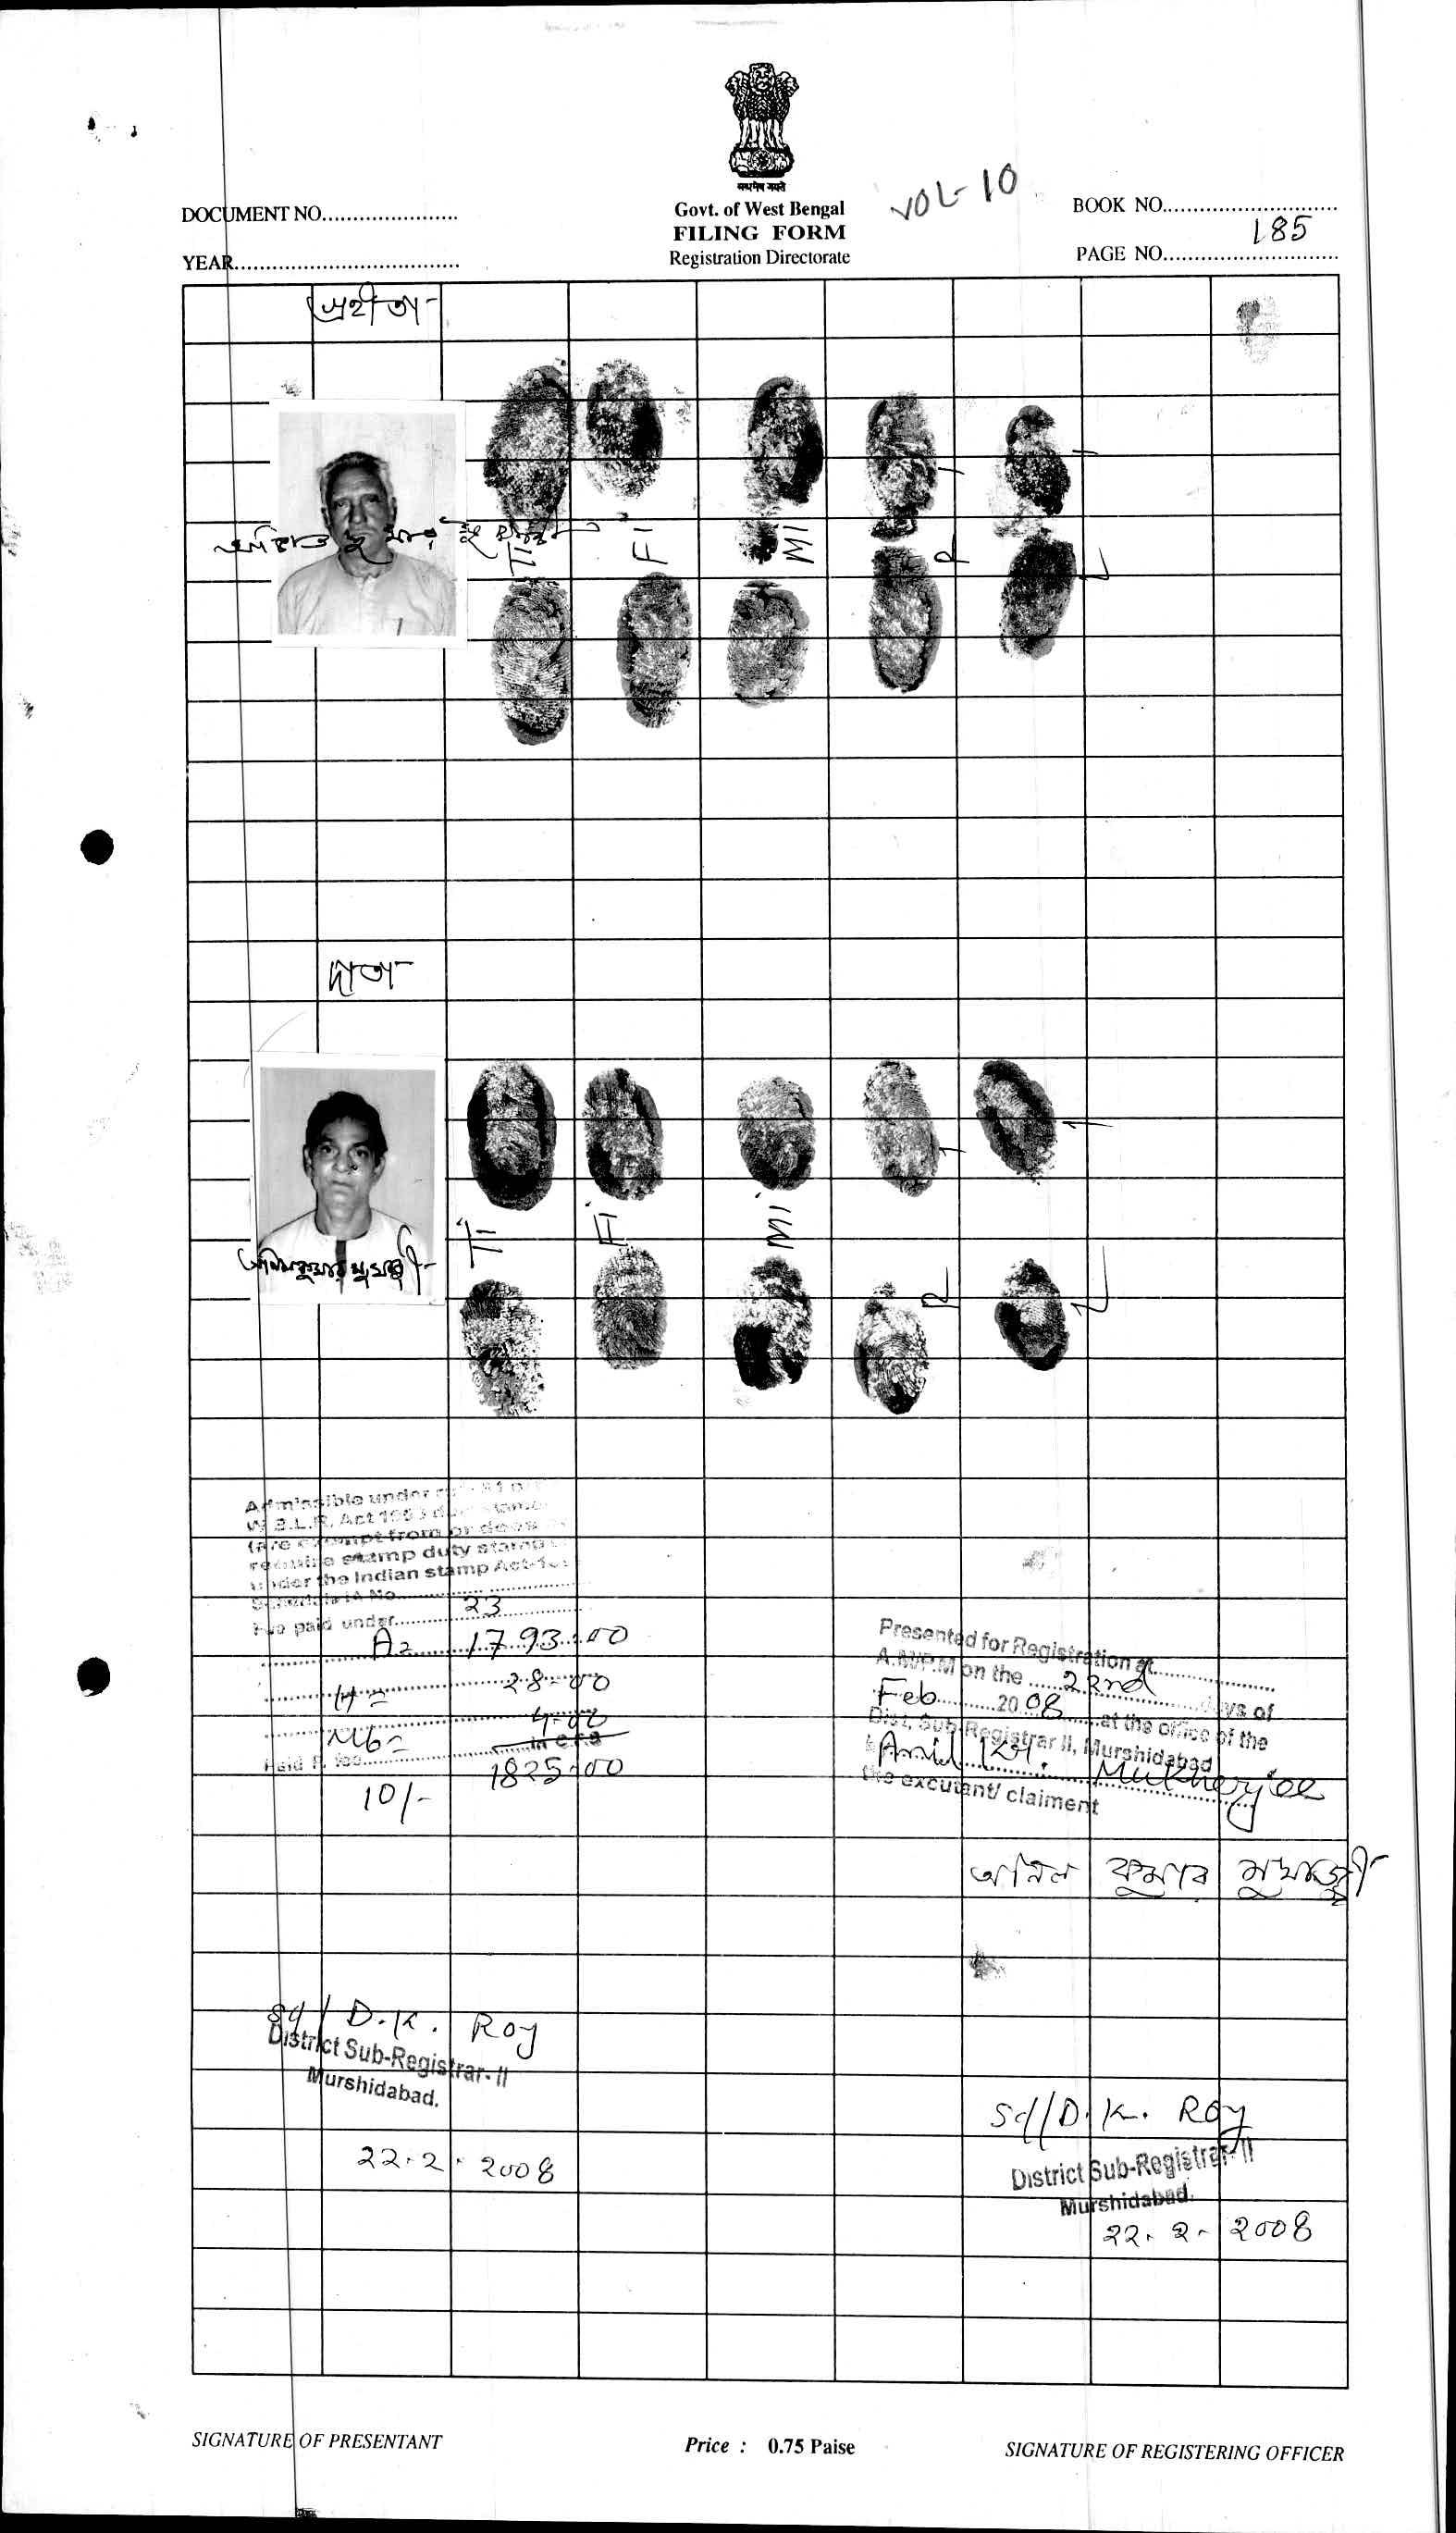 सत्यमेव जयते
DOCUMENT NO.
Govt. of West Bengal
VOL-10
BOOK NO.
FILING FORM
185
YEAR
Registration Directorate
PAGE NO.
গ্রহীতা
Ti
Fi
Mi
R
L
দাতা
অনিল কুমার মুখার্জ্জী
Ti
Fi
Mi
R
L
Admissible under
W.B.L.R. Act
exempt from or does
require stamp duty
under the Indian stamp Act
Schedule IA No.
Fee paid under 23
A = 1793.00
H = 28-00
Mb = 4-00
Paid P. fee
1825-00
10/-
Presented for Registration at
A.M/P.M on the 22nd days of
Feb 2008 at the office of the
Dist. Sub-Registrar II, Murshidabad
Anil Kr. Mukherjee
the excutant/ claiment
অনিল কুমার মুখার্জ্জী
Sd/ D.K. Roy
District Sub-Registrar-II
Murshidabad.
22.2.2008
Sd/ D.K. Roy
District Sub-Registrar-II
Murshidabad.
22.2.2008
SIGNATURE OF PRESENTANT
Price : 0.75 Paise
SIGNATURE OF REGISTERING OFFICER